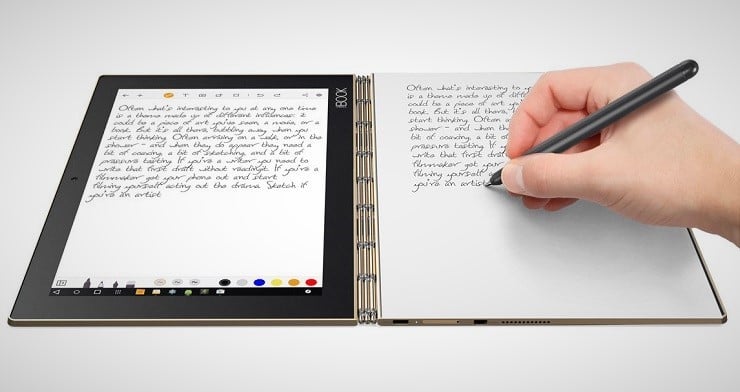 Often what's interesting to you at any one time
is a theme made up of different influences: it
could be a piece of art you've seen, a movie, or a
book. But it's all there, bubbling away when you
start thinking. Often arriving on a walk, or in the
shower - and when they do appear they need a
bit of coaxing, a bit of sketching, and a bit of
pressure testing. If you're a writer you need to
write that first draft without reading it. If you're a
filmmaker got your phone out and start
filming yourself acting out the drama. Sketch if
you're an artist
BOOK
Often what's interesting to
is a theme made up of
could be a piece of art
book. But it's all there,
start thinking. Often
shower - and when
bit of coaxing, a bit
pressure testing. If
write that first draft
filmmaker got your
filming yourself
you're an artist